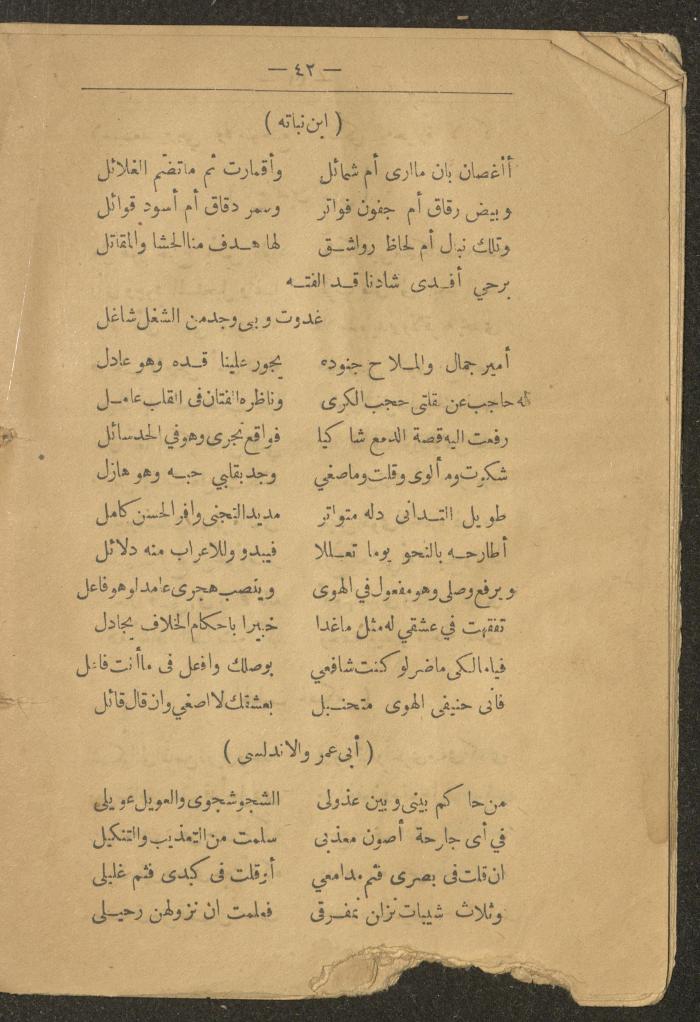 — ٤٢ —
( ابن نباته )
أأغصان بان ماارى أم شمائل وأقمارت ثم ماتضم الغلائل
وبيض رقاق أم جفون فواتر وسمر دقاق أم أسود قواتل
وتلك نبال أم لحاظ رواشق لها هدف مناالحشا والمقاتل
برحي أفدى شادنا قد الفته
غدوت وبى وجدمن الشغل شاغل
أمير جمال والملاح جنوده يجور علينا قده وهو عادل
له حاجب عن مقلتى حجب الكرى وناظره الفتان فى القلب عامل
رفعت اليه قصة الدمع شاكيا فواقع نجرى وهو في الخد سائل
شكوت وما ألوى وقلت وماصغي وجد بقلبي حبه وهو هازل
طويل التدانى دله متواتر مديد التجنى وافر الحسن كامل
أطارحه بالنحو يوما تعللا فيبدو وللاعراب منه دلائل
ويرفع وصلى وهو مفعول في الهوى وينصب هجرى عامدا وهو فاعل
تفقهت في عشقي له مثل ماغدا خبيرا باحكام الخلاف يجادل
فيامالكى ماضر لو كنت شافعي بوصلك وافعل فى ماأنت فاعل
فانى حنيفى الهوى متحنبل بعشقك لااصغي وان قال قائل
( أبى عمر والاندلسى )
من حاكم بينى وبين عذولى الشجو شجوى والعويل عويلى
في أى جارحة أصون معذبى سلمت من التعذيب والتنكيل
ان قلت فى بصرى فثم مدامعي أو قلت فى كبدى فثم غليلى
وثلاث شيبات نزلن بمفرقى فعلمت ان نزولهن رحيلى